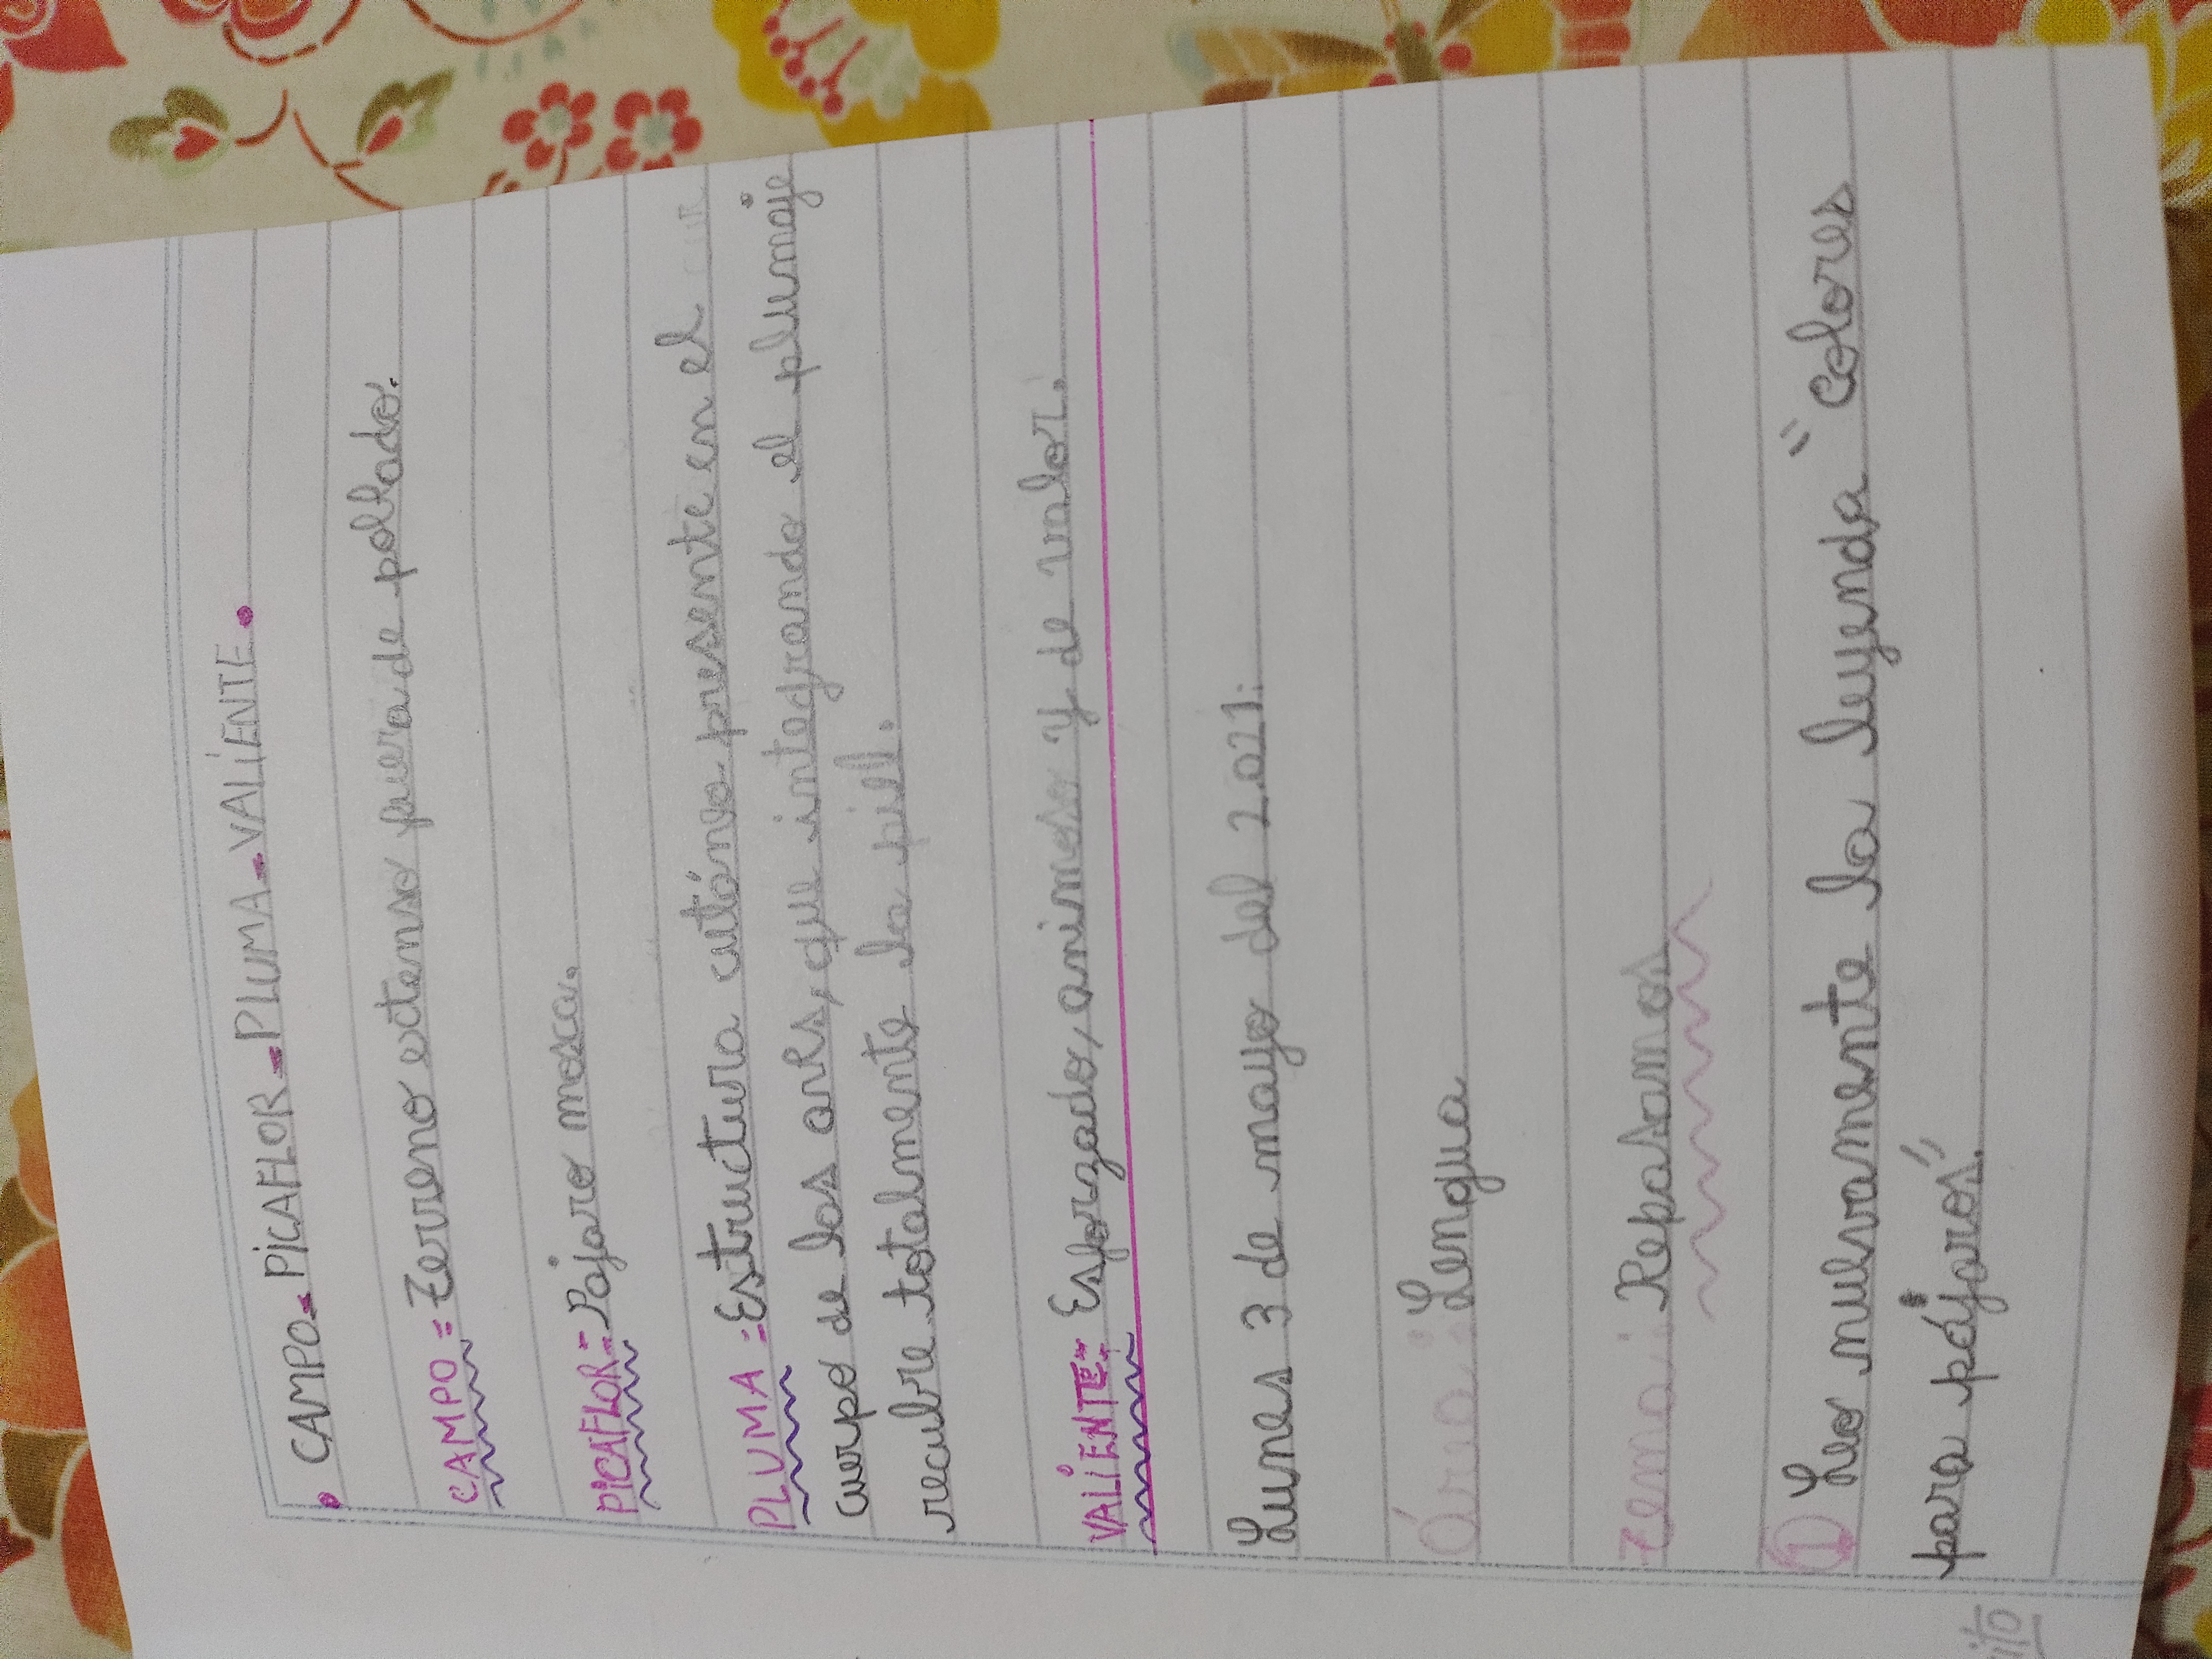 • CAMPO-PICAFLOR-PLUMA-VALIENTE.
CAMPO = Terreno extenso fuera de poblado.
PICAFLOR= Pajaro mosca.
PLUMA = Estructura cutánea presente en el
cuerpo de las aves, que integrando el plumaje
recubre totalmente la piel.
VALIENTE= Esforzado, animoso y de valor.
Lunes 3 de mayo del 2.021.
Área: Lengua
Tema: Repasamos
1) Leo nuevamente la leyenda "Colores
para pájaros".